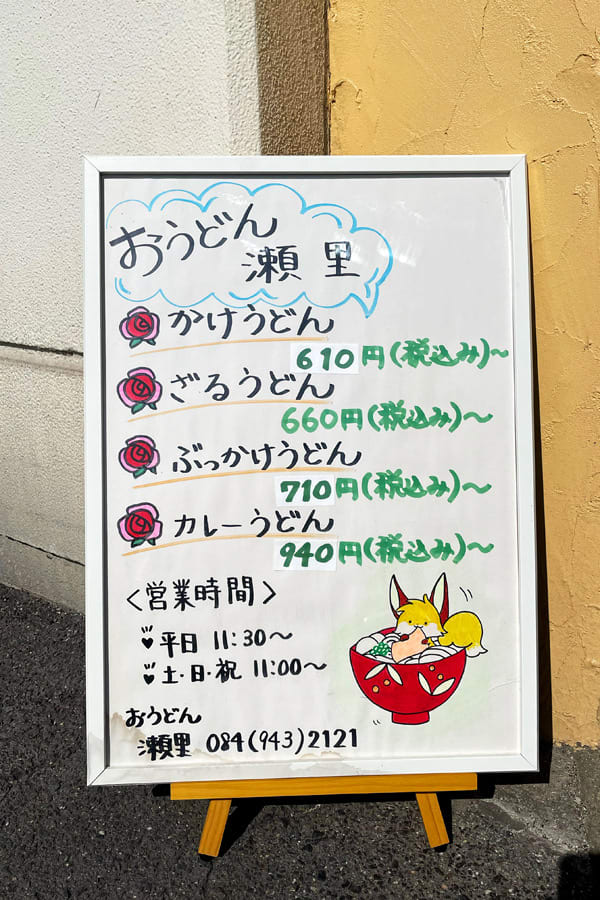 おうどん
瀬里
かけうどん
610円(税込み)～
ざるうどん
660円(税込み)～
ぶっかけうどん
710円(税込み)～
カレーうどん
940円(税込み)～
<営業時間>
平日 11:30～
土・日・祝 11:00～
おうどん
瀬里 084(943)2121